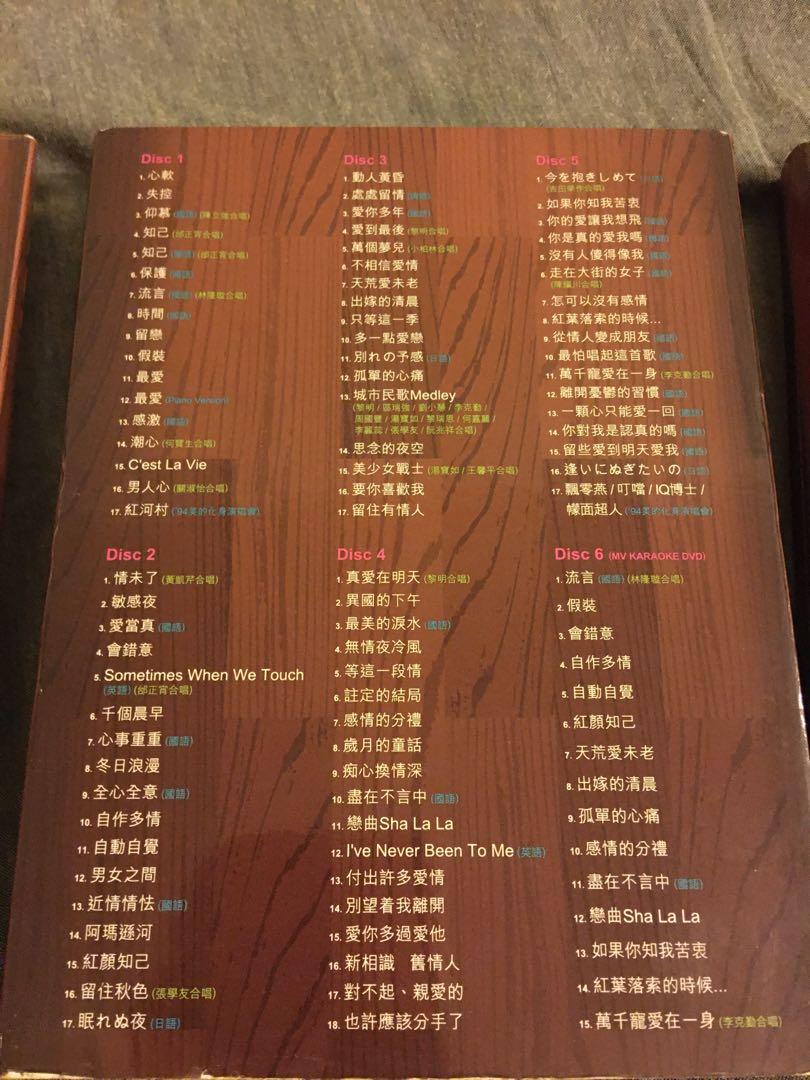 Disc 1
1. 心軟
2. 失控
3. 仰慕 (國語) (陳立強合唱)
4. 知己 (邰正宵合唱)
5. 知己 (國語) (邰正宵合唱)
6. 保護 (國語)
7. 流言 (國語) (林隆璇合唱)
8. 時間 (國語)
9. 留戀
10. 假裝
11. 最愛
12. 最愛 (Piano Version)
13. 感激 (國語)
14. 潮心 (何寶生合唱)
15. C'est La Vie
16. 男人心 (關淑怡合唱)
17. 紅河村 ('94美的化身演唱會)
Disc 2
1. 情未了 (黃凱芹合唱)
2. 敏感夜
3. 愛當真 (國語)
4. 會錯意
5. Sometimes When We Touch
(英語) (邰正宵合唱)
6. 千個晨早
7. 心事重重 (國語)
8. 冬日浪漫
9. 全心全意 (國語)
10. 自作多情
11. 自動自覺
12. 男女之間
13. 近情情怯 (國語)
14. 阿瑪遜河
15. 紅顏知己
16. 留住秋色 (張學友合唱)
17. 眠れぬ夜 (日語)
Disc 3
1. 動人黃昏
2. 處處留情 (國語)
3. 愛你多年 (國語)
4. 愛到最後 (黎明合唱)
5. 萬個夢兒 (小柏林合唱)
6. 不相信愛情
7. 天荒愛未老
8. 出嫁的清晨
9. 只等這一季
10. 多一點愛戀
11. 別れの予感 (日語)
12. 孤單的心痛
13. 城市民歌Medley
(黎明 / 區瑞強 / 劉小慧 / 李克勤 /
周國豐 / 湯寶如 / 黎瑞恩 / 何嘉麗 /
李麗蕊 / 張學友 / 阮兆祥合唱)
14. 思念的夜空
15. 美少女戰士 (湯寶如 / 王馨平合唱)
16. 要你喜歡我
17. 留住有情人
Disc 4
1. 真愛在明天 (黎明合唱)
2. 異國的下午
3. 最美的淚水 (國語)
4. 無情夜冷風
5. 等這一段情
6. 註定的結局
7. 感情的分禮
8. 歲月的童話
9. 痴心換情深
10. 盡在不言中 (國語)
11. 戀曲Sha La La
12. I've Never Been To Me (英語)
13. 付出許多愛情
14. 別望着我離開
15. 愛你多過愛他
16. 新相識 舊情人
17. 對不起、親愛的
18. 也許應該分手了
Disc 5
1. 今を抱きしめて (日語)
(吉田榮作合唱)
2. 如果你知我苦衷
3. 你的愛讓我想飛 (國語)
4. 你是真的愛我嗎 (國語)
5. 沒有人傻得像我 (國語)
6. 走在大街的女子 (國語)
(陳繼川合唱)
7. 怎可以沒有感情
8. 紅葉落索的時候...
9. 從情人變成朋友 (國語)
10. 最怕唱起這首歌 (國語)
11. 萬千寵愛在一身 (李克勤合唱)
12. 離開憂鬱的習慣 (國語)
13. 一顆心只能愛一回 (國語)
14. 你對我是認真的嗎 (國語)
15. 留些愛到明天愛我 (國語)
16. 逢いにぬぎたいの (日語)
17. 飄零燕 / 叮噹 / IQ博士 /
幪面超人 ('94美的化身演唱會)
Disc 6 (MV KARAOKE DVD)
1. 流言 (國語) (林隆璇合唱)
2. 假裝
3. 會錯意
4. 自作多情
5. 自動自覺
6. 紅顏知己
7. 天荒愛未老
8. 出嫁的清晨
9. 孤單的心痛
10. 感情的分禮
11. 盡在不言中 (國語)
12. 戀曲Sha La La
13. 如果你知我苦衷
14. 紅葉落索的時候...
15. 萬千寵愛在一身 (李克勤合唱)